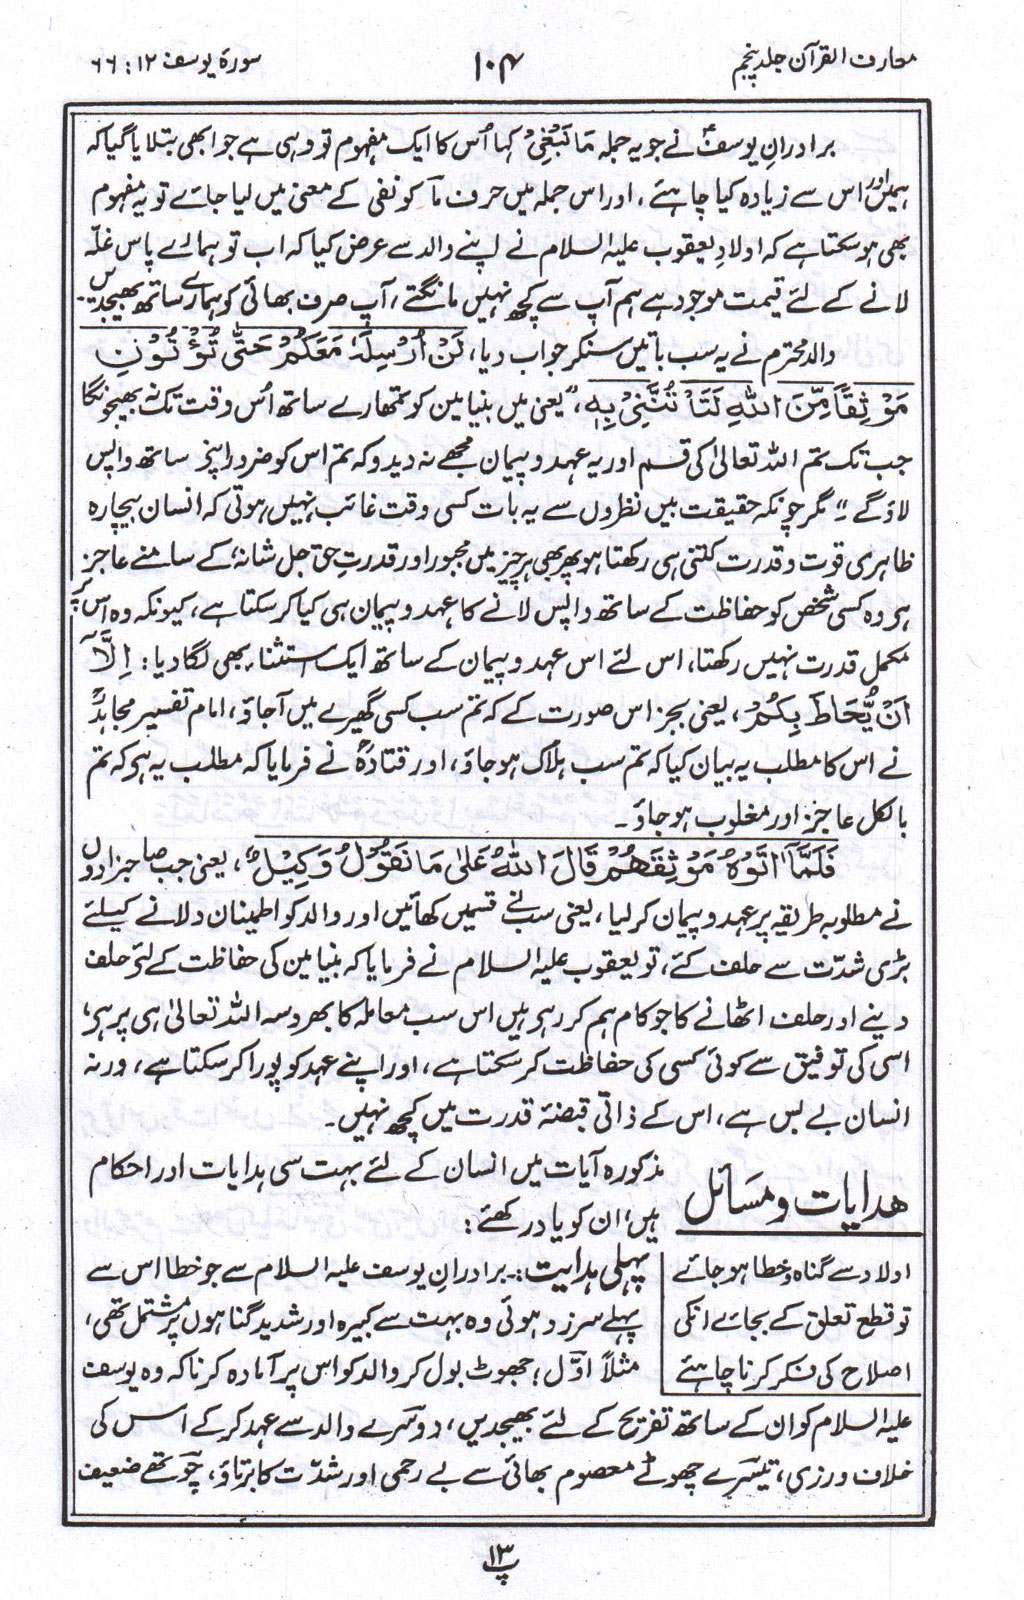 معارف القرآن جلد پنجم
۱۰۴
سورۃ یوسف ۱۲: ۶۶
برادرانِ یوسفؑ نے جو یہ جملہ مَا نَبْغِیْ کہا اُس کا ایک مفہوم تو وہی ہے جو ابھی بتلایا گیا کہ
ہمیں اور اس سے زیادہ کیا چاہئے، اور اس جملہ میں حرف مَا کو نفی کے معنی میں لیا جائے تو یہ مفہوم
بھی ہو سکتا ہے کہ اولادِ یعقوب علیہ السلام نے اپنے والد سے عرض کیا کہ اب تو ہمارے پاس غلّہ
لانے کے لئے قیمت موجود ہے ہم آپ سے کچھ نہیں مانگتے، آپ صرف بھائی کو ہمارے ساتھ بھیجدیں۔
والد محترم نے یہ سب باتیں سنکر جواب دیا، لَنْ اُرْسِلَهٗ مَعَكُمْ حَتّٰى تُؤْتُوْنِ
مَوْثِقًا مِّنَ اللّٰهِ لَتَاْتُنَّنِیْ بِهٖ، ”یعنی میں بنیامین کو تمھارے ساتھ اُس وقت تک نہ بھیجونگا
جب تک تم اللہ تعالیٰ کی قسم اور یہ عہد و پیمان مجھے نہ دیدو کہ تم اس کو ضرور اپنے ساتھ واپس
لاؤ گے“ مگر چونکہ حقیقت میں نظروں سے یہ بات کسی وقت غائب نہیں ہوتی کہ انسان بیچارہ
ظاہری قوت و قدرت کتنی ہی رکھتا ہو پھر بھی ہر چیز میں مجبور اور قدرتِ حق جل شانہٗ کے سامنے عاجز
ہی وہ کسی شخص کو حفاظت کے ساتھ واپس لانے کا عہد و پیمان ہی کیا کر سکتا ہے، کیونکہ وہ اس پر
مکمل قدرت نہیں رکھتا، اس لئے اس عہد و پیمان کے ساتھ ایک استثناء بھی لگا دیا: اِلَّآ
اَنْ یُّحَاطَ بِكُمْ، یعنی بجز اس صورت کے کہ تم سب کسی گھیرے میں آجاؤ، امام تفسیر مجاہدؒ
نے اس کا مطلب یہ بیان کیا کہ تم سب ہلاک ہو جاؤ، اور قتادہؒ نے فرمایا کہ مطلب یہ ہی کہ تم
بالکل عاجز اور مغلوب ہو جاؤ۔
فَلَمَّآ اٰتَوْهُ مَوْثِقَهُمْ قَالَ اللّٰهُ عَلٰى مَا نَقُوْلُ وَكِیْلٌ، یعنی جب صاحبزادوں
نے مطلوبہ طریقہ پر عہد و پیمان کر لیا، یعنی سب نے قسمیں کھائیں اور والد کو اطمینان دلانے کیلئے
بڑی شدّت سے حلف کئے، تو یعقوب علیہ السلام نے فرمایا کہ بنیامین کی حفاظت کے لئے حلف
دینے اور حلف اٹھانے کا جو کام ہم کر رہے ہیں اس سب معاملہ کا بھروسہ اللہ تعالیٰ ہی پر ہی،
اسی کی توفیق سے کوئی کسی کی حفاظت کر سکتا ہے، اور اپنے عہد کو پورا کر سکتا ہے، ورنہ
انسان بے بس ہے، اس کے ذاتی قبضۂ قدرت میں کچھ نہیں۔
ھدایات و مسائل
مذکورہ آیات میں انسان کے لئے بہت سی ہدایات اور احکام
ہیں، ان کو یاد رکھئے:
اولاد سے گناہ و خطا ہو جائے
تو قطع تعلق کے بجائے انکی
اصلاح کی فکر کرنا چاہئے
پہلی ہدایت:۔ برادرانِ یوسف علیہ السلام سے جو خطا اس سے
پہلے سرزد ہوئی وہ بہت سے کبیرہ اور شدید گناہوں پر مشتمل تھی،
مثلاً اوّل، جھوٹ بول کر والد کو اس پر آمادہ کرنا کہ وہ یوسف
علیہ السلام کو ان کے ساتھ تفریح کے لئے بھیجدیں، دوسرے والد سے عہد کر کے اس کی
خلاف ورزی، تیسرے چھوٹے معصوم بھائی سے بے رحمی اور شدّت کا برتاؤ، چوتھے ضعیف
پ ۱۳